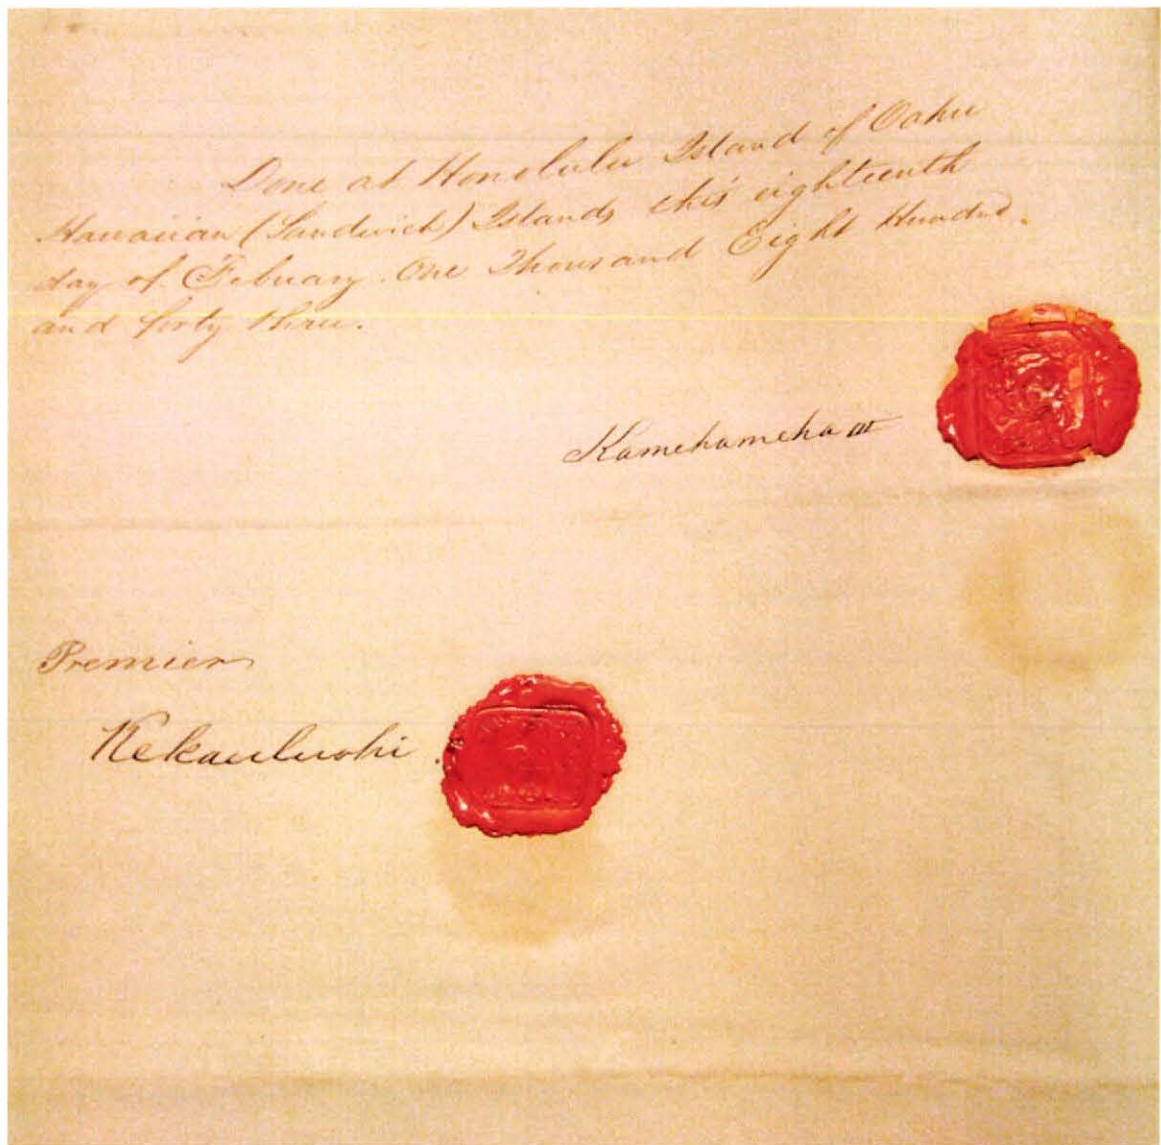 Done at Honolulu Island of Oahu
Hawaiian (Sandwich) Islands this eighteenth
day of Febuary. One Thousand Eight Hundred.
and forty three.
Kamehameha III
Premier
Kekauluohi.